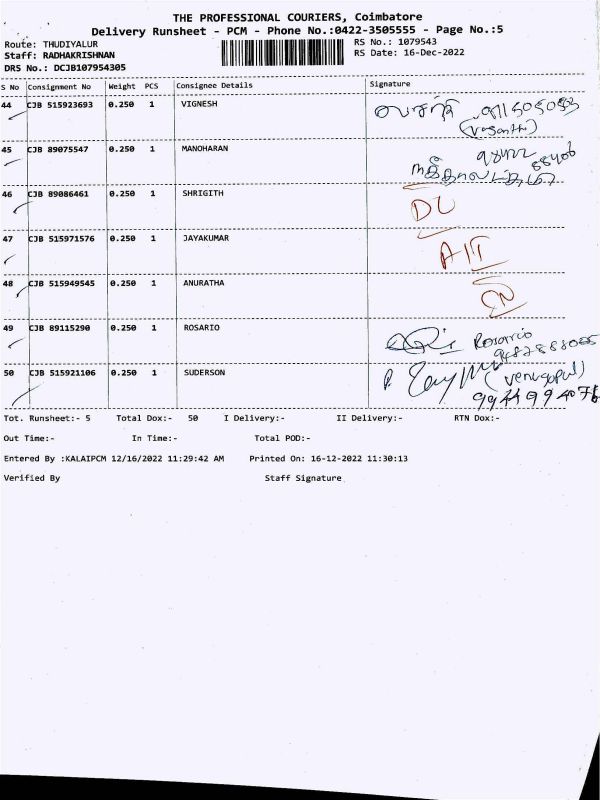 THE PROFESSIONAL COURIERS, Coimbatore
Delivery Runsheet - PCM - Phone No.:0422-3505555 - Page No.:5
Route: THUDIYALUR
RS No.: 1079543
Staff: RADHAKRISHNAN
RS Date: 16-Dec-2022
DRS No.: DCJB107954305
S No Consignment No Weight PCS Consignee Details Signature
44 CJB 515923693 0.250 1 VIGNESH
(Vasanthi)
45 CJB 89075547 0.250 1 MANOHARAN 98422
88406
46 CJB 89086461 0.250 1 SHRIGITH DL
47 CJB 515971576 0.250 1 JAYAKUMAR
48 CJB 515949545 0.250 1 ANURATHA
49 CJB 89115290 0.250 1 ROSARIO Rosario
50 CJB 515921106 0.250 1 SUDERSON (Venugopal)
9944994076
Tot. Runsheet:- 5 Total Dox:- 50 I Delivery:- II Delivery:- RTN Dox:-
Out Time:- In Time:- Total POD:-
Entered By :KALAIPCM 12/16/2022 11:29:42 AM Printed On: 16-12-2022 11:30:13
Verified By Staff Signature